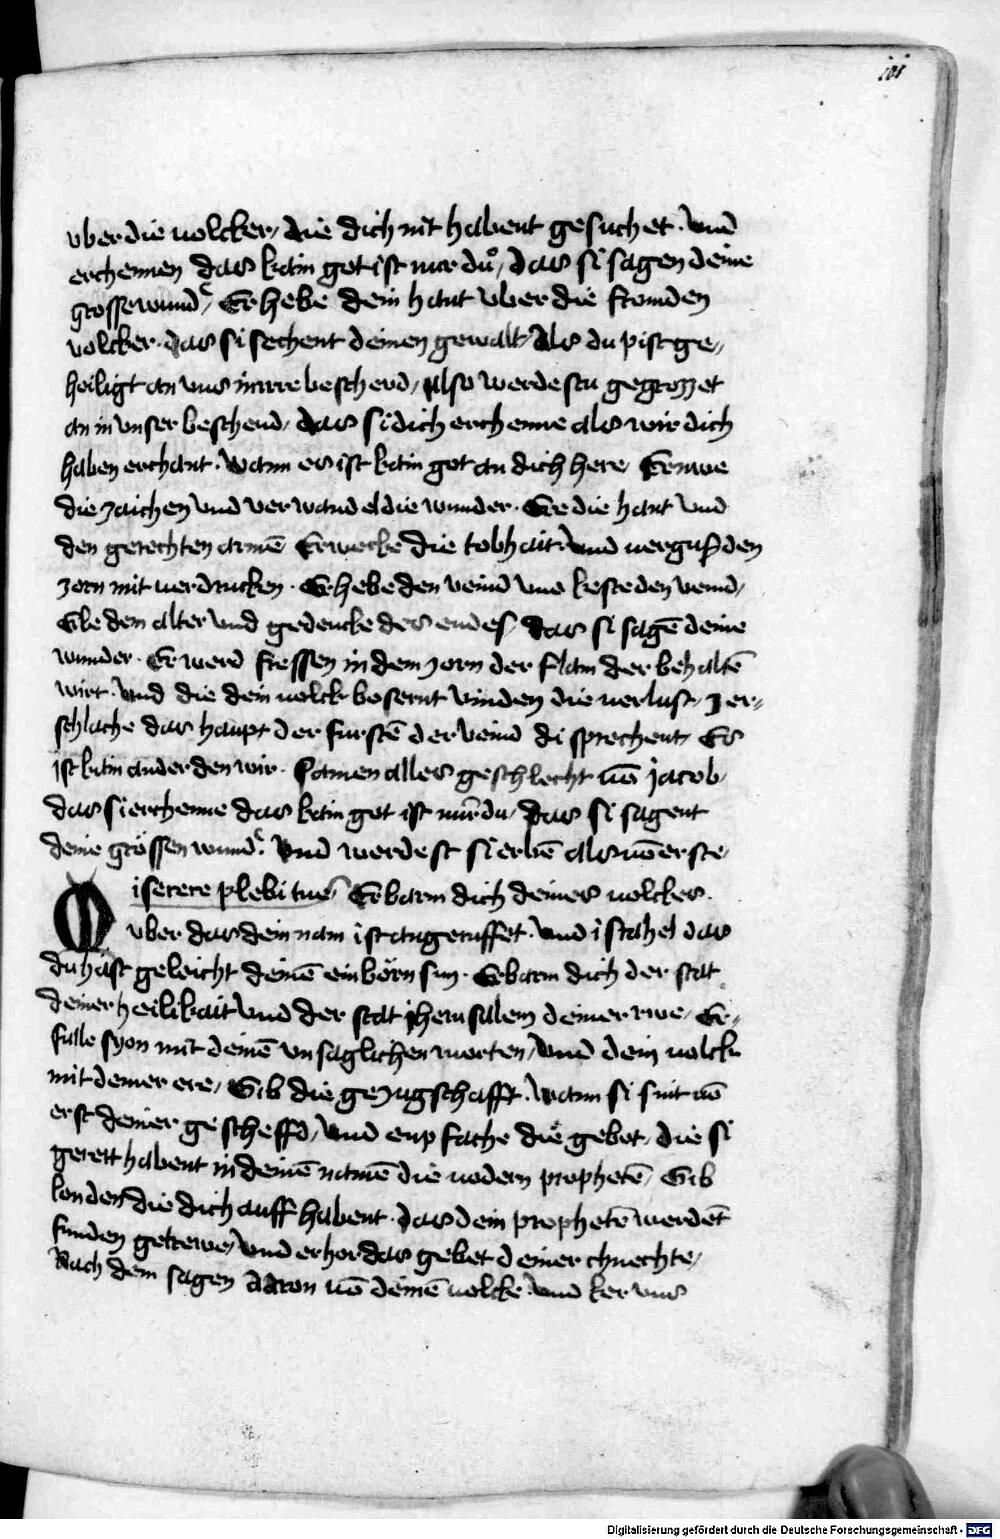 101
vber die uolcker / die dich nit habent gesuchet · vnd
erchennen das kain got ist nur du / das si sagen deine
grosse wund / Erhebe dein hant vber die fromden
volcker · das si sechent deinen gewalt / Als du pist ge /
heiligt an vns in irre beschend / Also werdestu gegrozzet
an in vnser beschend / das si dich erchenne als wir dich
haben erchant · Wann es ist kain got an dich here / Ernwe
die zaichen vnd verwandel die wunder · Ere die hant vnd
den gerechten armē Erwecke die tobhait · vnd uergus den
zorn mit verdrucken · Erhebe den veind vnd keste den veind /
Ele dem alter vnd gedencke des endes / das si sagē deine
wunder · Er werd fressen in dem zorn der flam der behaltē
wirt · vnd die dein uolck bosernt vinden die uerlust · zer /
schlache das haupt der furstē der veind di sprechent / Es
ist kain ander den wir · Samen alles geschlecht uō jacob /
das si erchenne das kain got ist nur du / das si sagent
deine grössen wund · Vnd werdest si erbē als uō erste /
Miserere plebi tue / Erbarm dich deines uolckes ·
vber das dein nam ist angeruffet · vnd israhel das
du hast geleicht deinē einborn sun · Erbarm dich der stat
deiner heilikait vnd der stat jherusalem deiner rwe / Er /
fulle syon mit deinē vnsaglichen worten / vnd dein uolck
mit deiner ere / Gib die gezugschafft · Wann si sint uō
erst deiner gescheffd / vnd enpfache die gebet / die si
gerett habent in deinē namē die uodern prophetē / Gib
lon den die dich auff habent · das dein prophetē werdēt
funden getrewe / vnd erhor das gebet deiner chnechte /
Nach dem sagen Aaron uō deinē uolcke · vnd ker vns
Digitalisierung gefördert durch die Deutsche Forschungsgemeinschaft - DFG